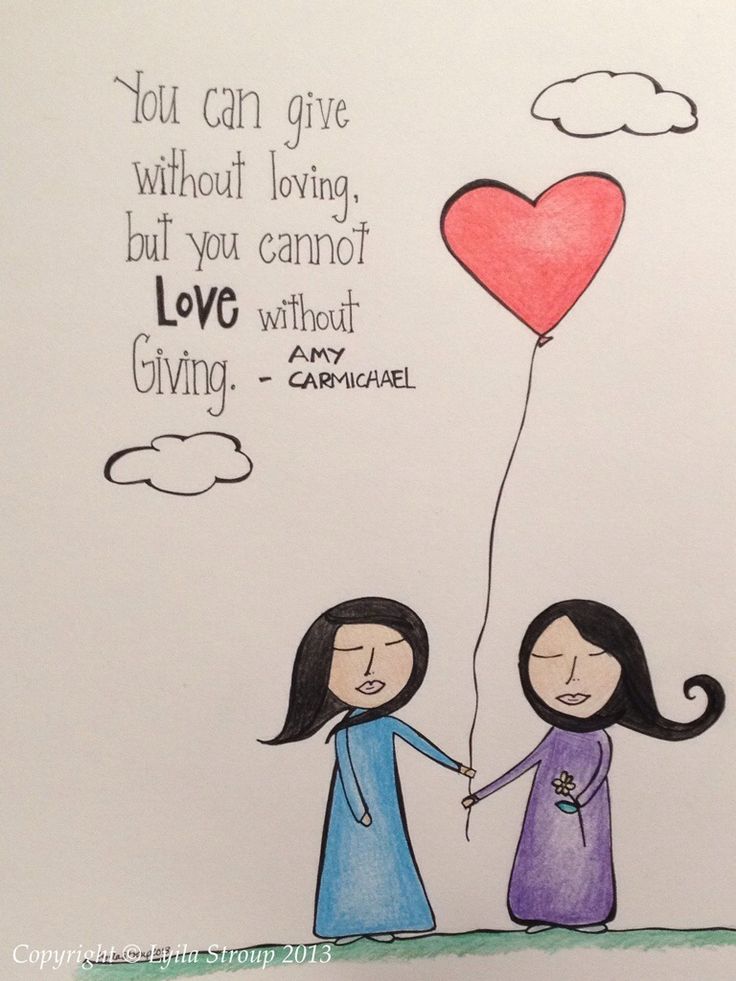 You can give
without loving,
but you cannot
LOVE without
Giving. - AMY
CARMICHAEL
Copyright © Lyila Stroup 2013